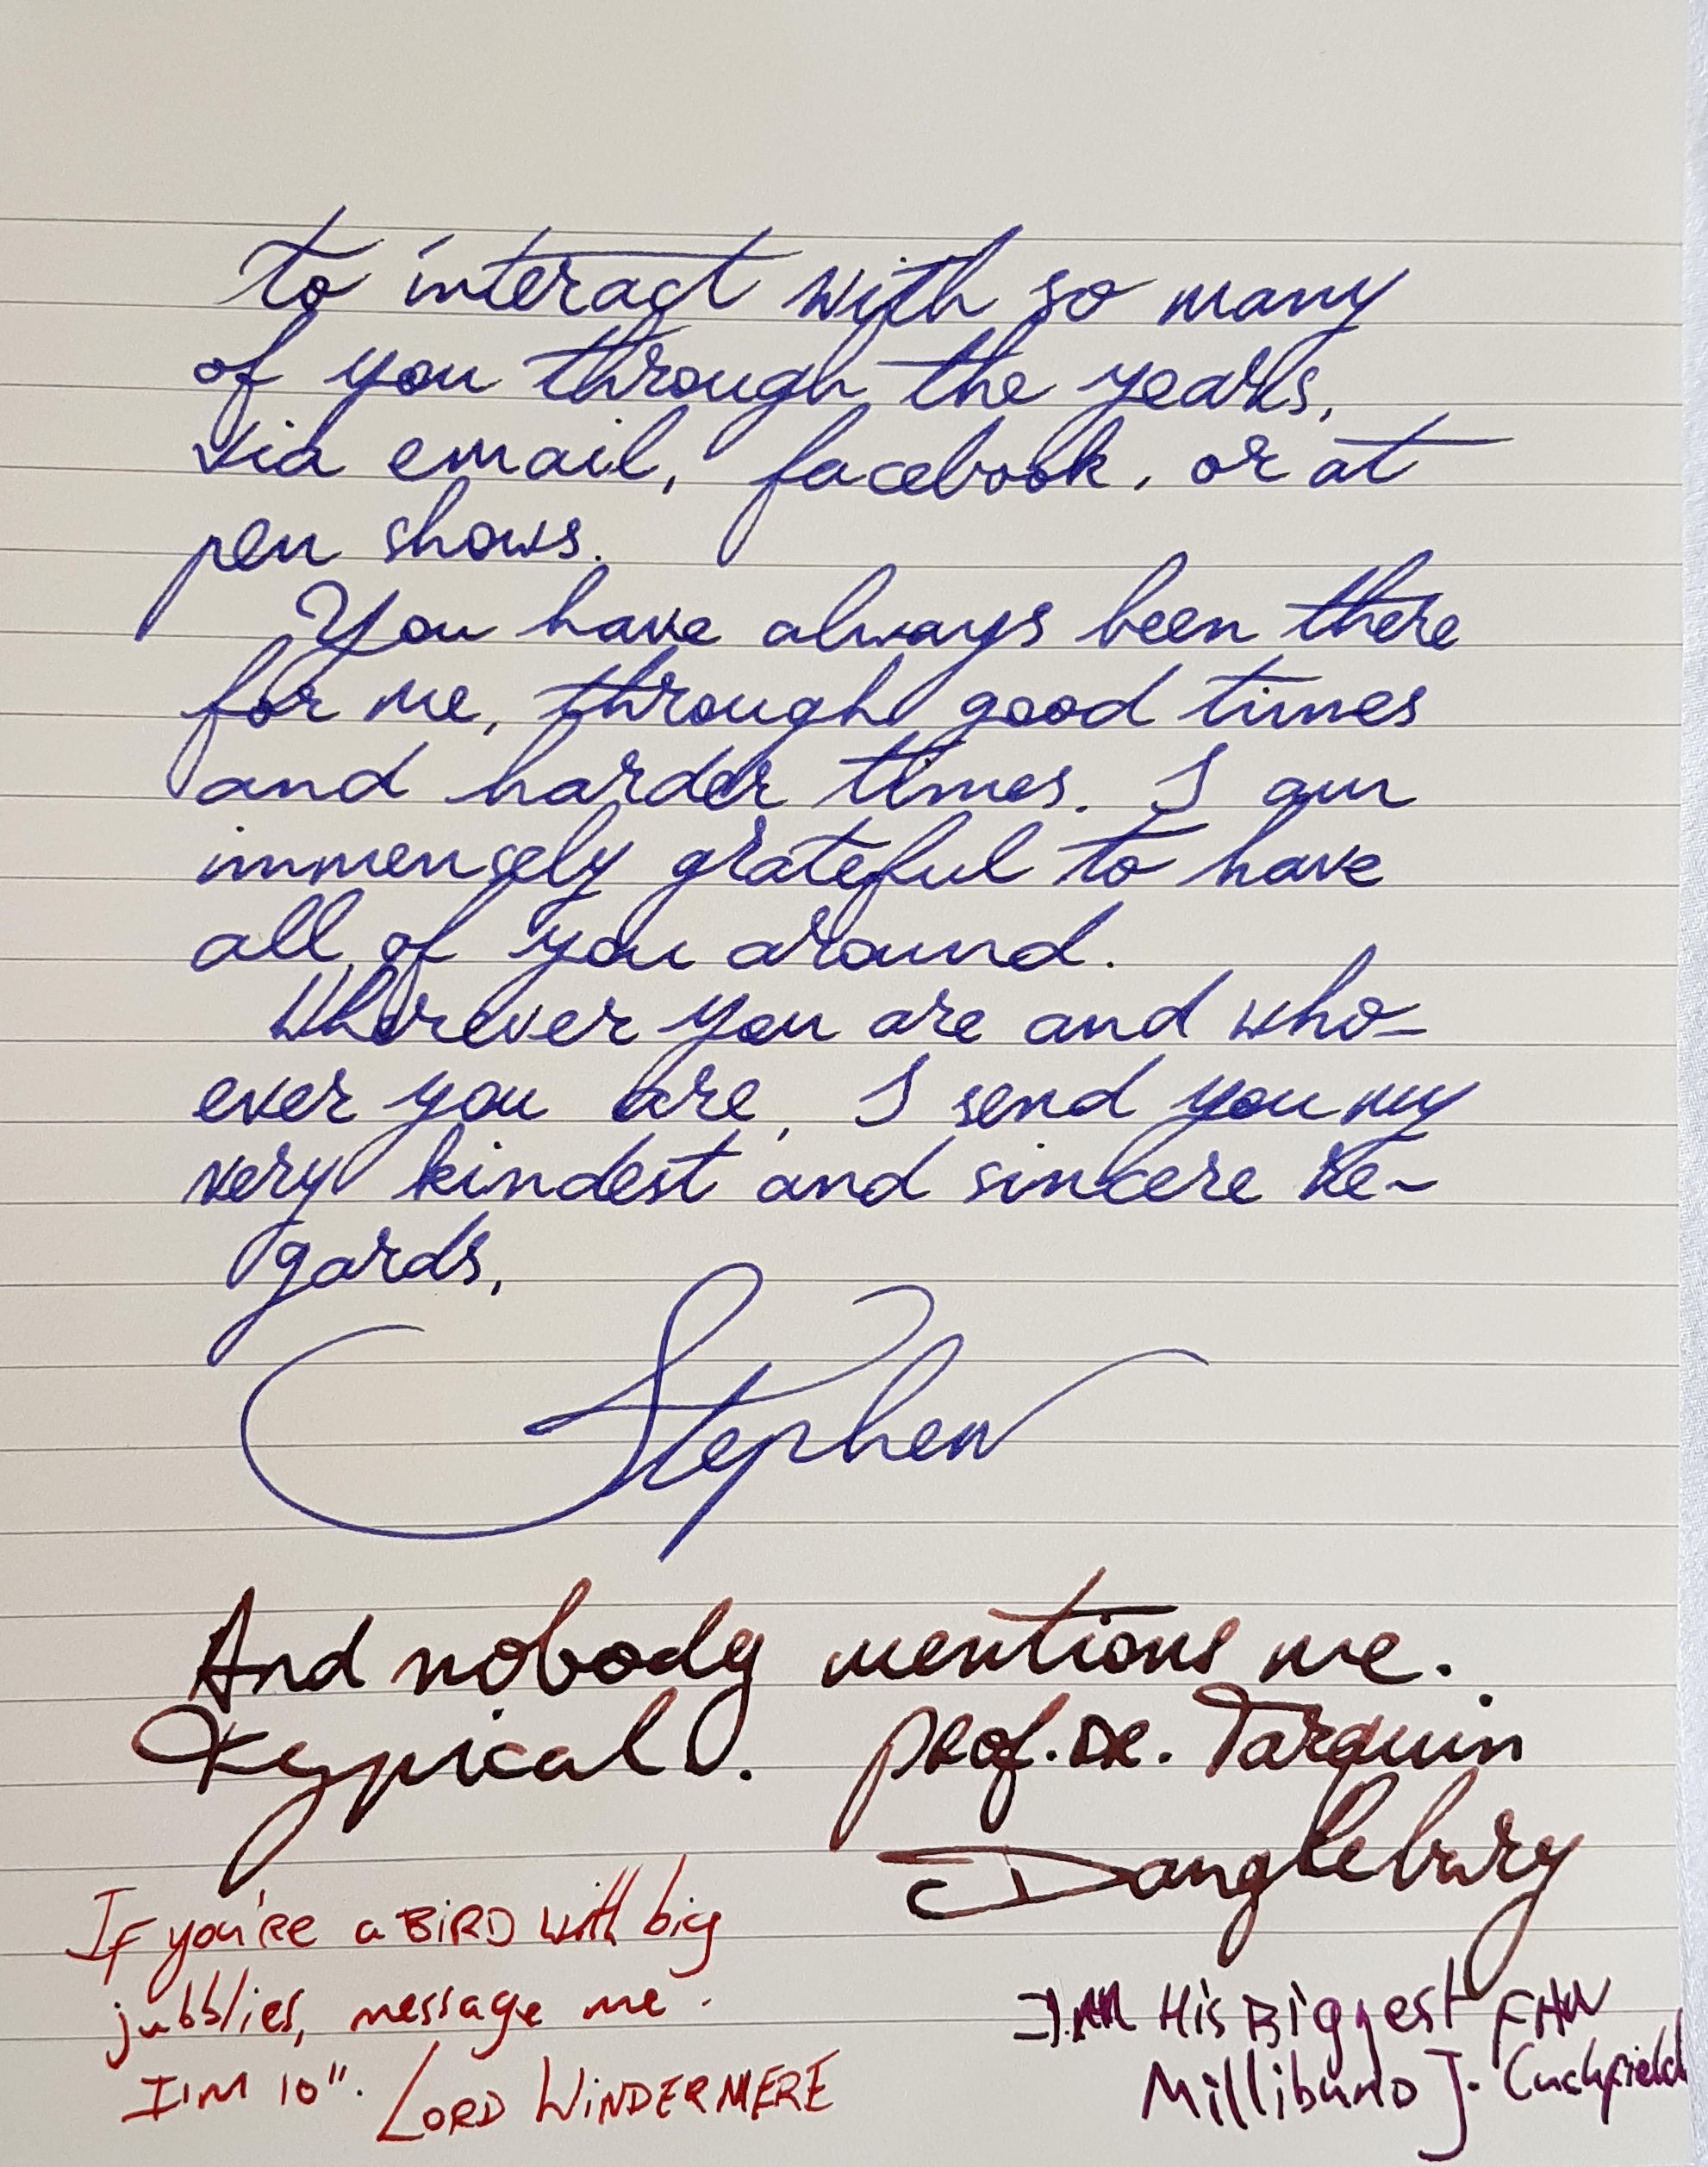 to interact with so many
of you through the years,
via email, facebook, or at
pen shows.
You have always been there
for me, through good times
and harder times. I am
immensely grateful to have
all of you around.
Wherever you are and who-
ever you are, I send you my
very kindest and sincere re-
gards,
Stephen
And nobody mentions me.
Typical. Prof. Dr. Tarquin
Danglebury
If you're a BIRD with big
jubblies, message me.
I'm 10". LORD WINDERMERE
I am His Biggest FAN
J.